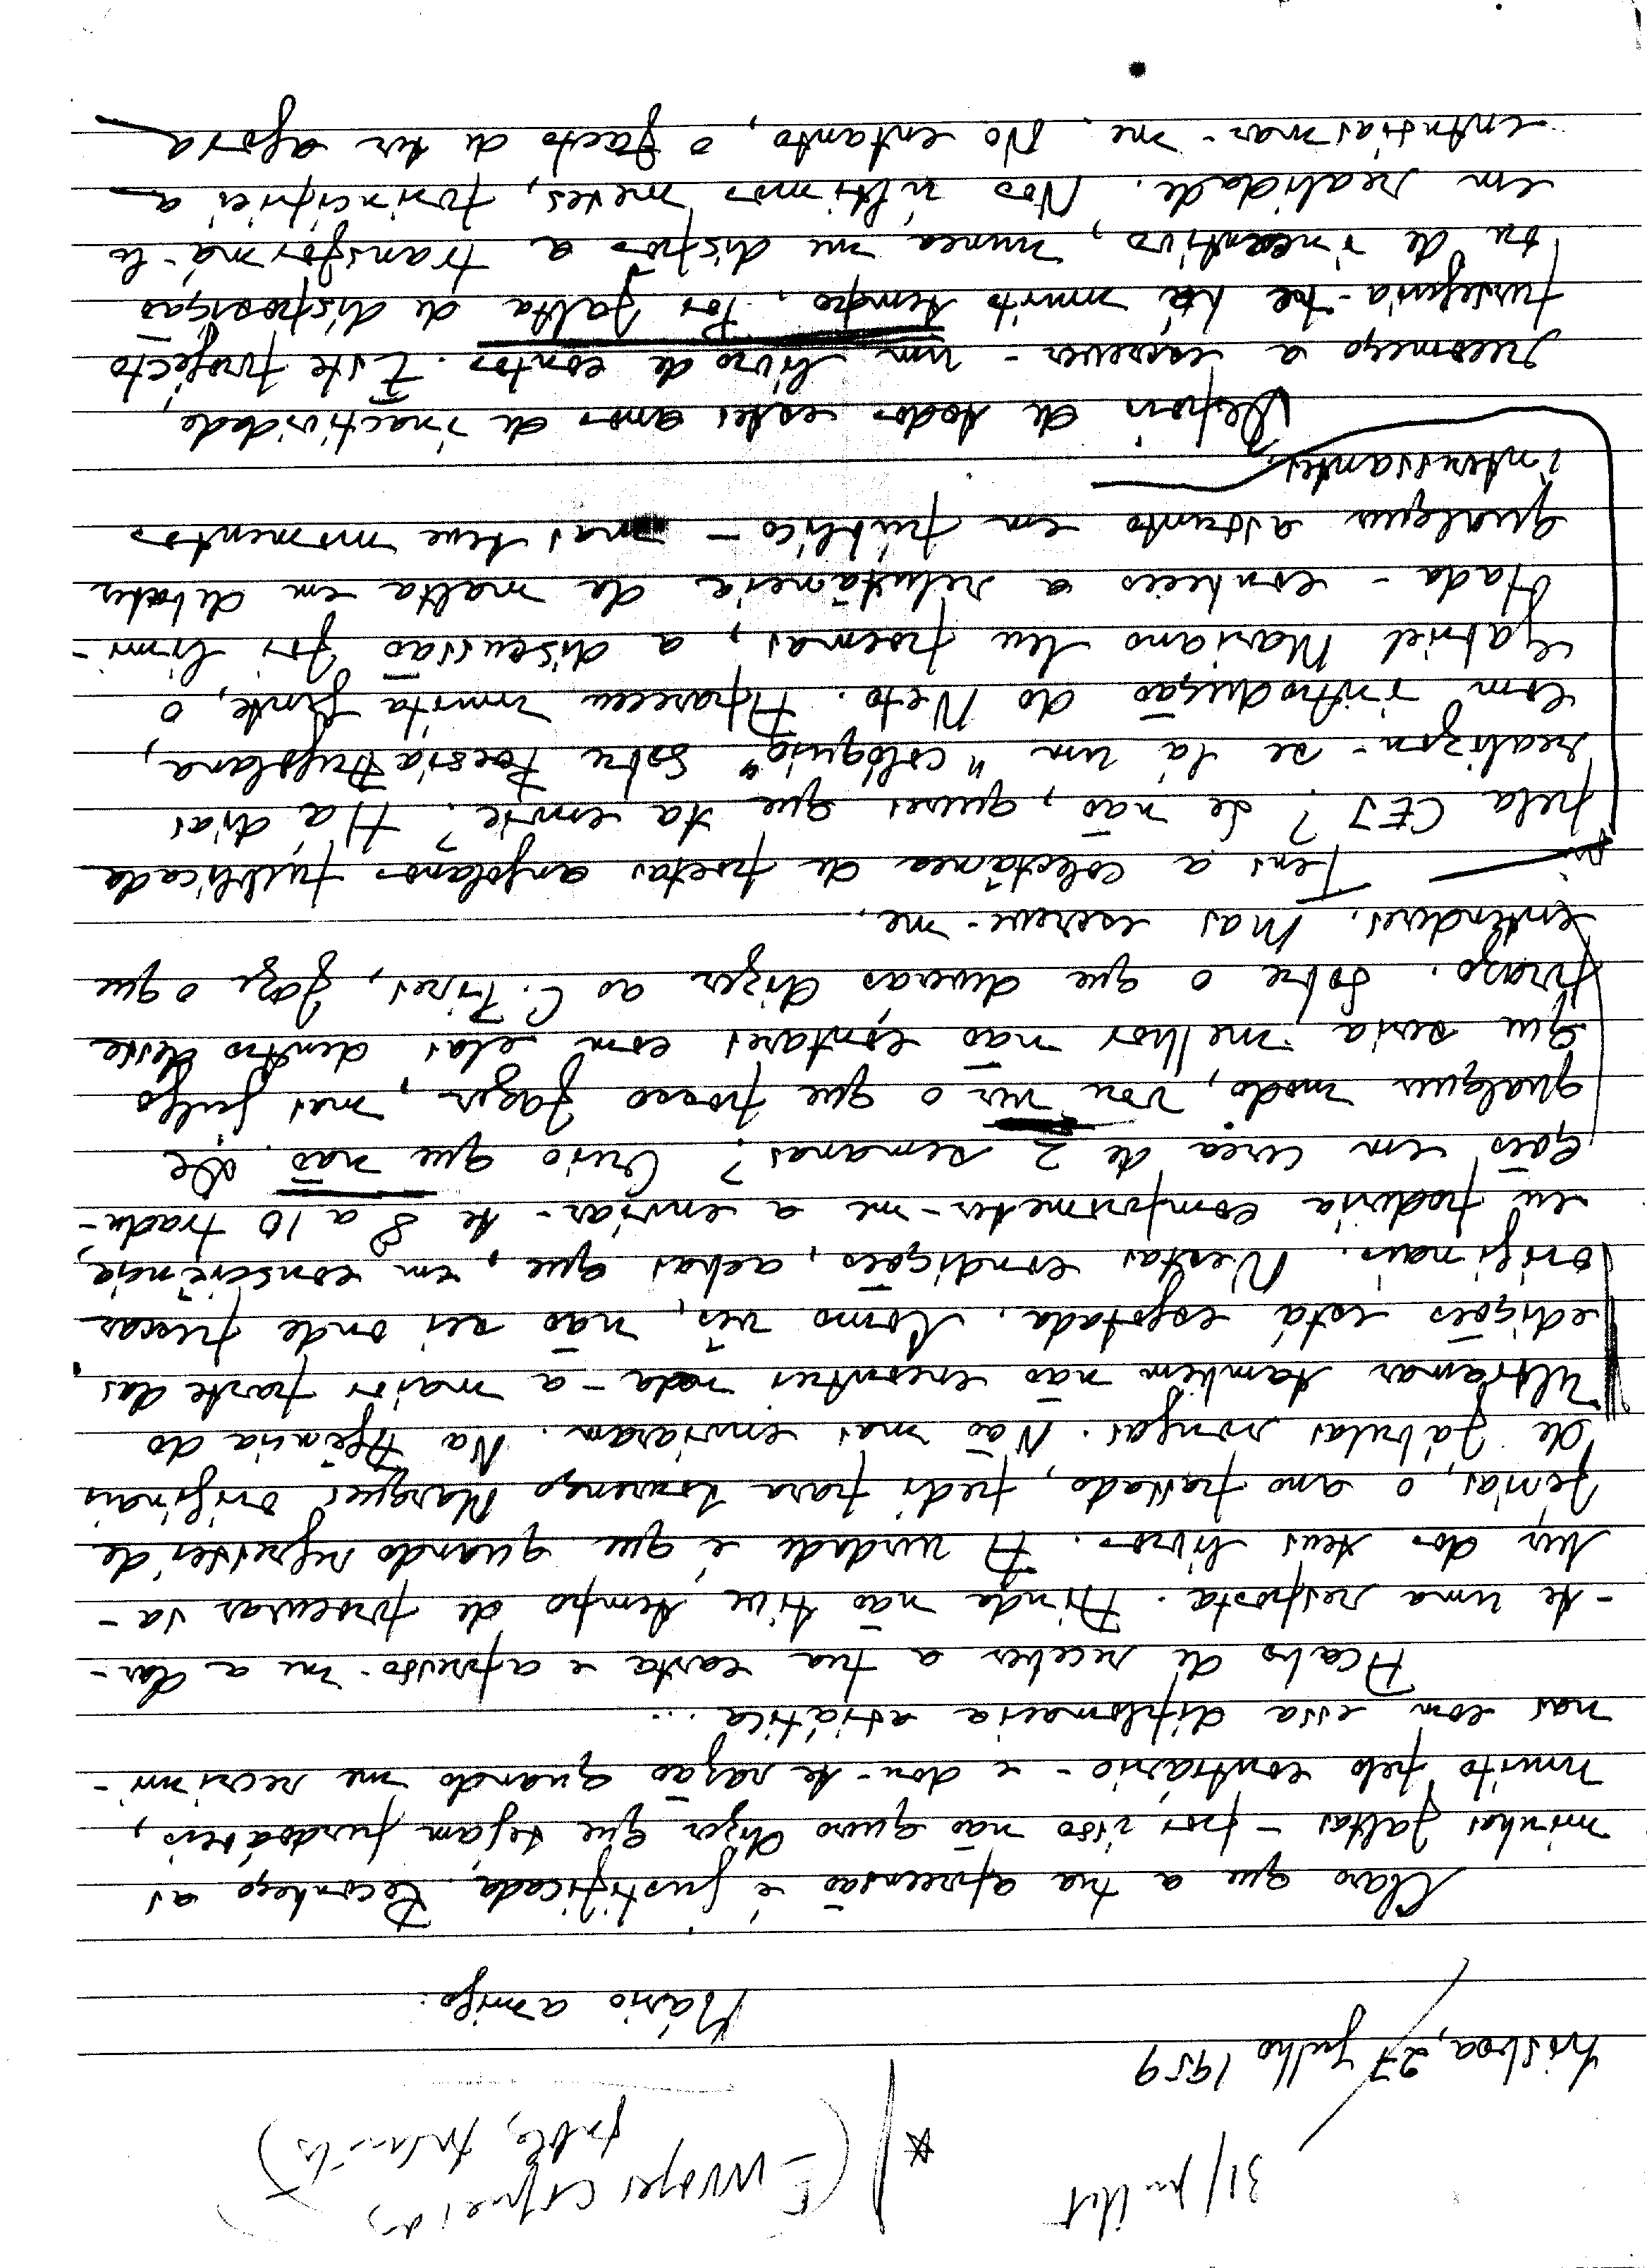 31/juillet
(Envoyer copie des
fables, traduites)
Lisboa, 27 julho 1959
Mário amigo:
Claro que a tua apreensão é justificada. Reconheço as
minhas faltas – por isso não quero dizer que sejam perdoáveis,
muito pelo contrário – e dou-te razão quando me recrimi-
nas com essa diplomacia asiática...
Acabo de receber a tua carta e apresso-me a dar-
-te uma resposta. Ainda não tive tempo de procurar sa-
ber dos teus livros. A verdade é que quando regressei de
férias, o ano passado, pedi para Lourenço Marques originais
de fábulas rongas. Não mas enviaram. Na Agência do
Ultramar também não encontrei nada – a maior parte das
edições está esgotada. Como vês, não sei onde pescar
originais. Nestas condições, achas que, em consciência,
eu poderia comprometer-me a enviar-te 8 a 10 tradu-
ções em cerca de 2 semanas? Creio que não. De
qualquer modo, vou ver o que posso fazer, mas julgo
que seria melhor não contares com elas dentro deste
prazo. Sobre o que deveras dizer ao C. Pires, faze o que
entenderes. Mas escreve-me.
Tens a colectânea de poetas angolanos publicada
pela CEI? Se não, queres que ta envie? Há dias
realizou-se lá um "colóquio" sobre Poesia Angolana,
com introdução do Neto. Apareceu muita gente, o
Gabriel Mariano leu poemas, a discussão foi limi-
tada – conheces a relutância da malta em debater
qualquer assunto em público – mas teve momentos
interessantes.
Depois de todos estes anos de inactividade,
recomeço a escrever – um livro de contos. Este projecto
perseguia-me há muito tempo. Por falta de disposição
ou de incentivo, nunca me dispus a transformá-lo
em realidade. Nos últimos meses, principiei a
entusiasmar-me. No entanto, o facto de ter agora